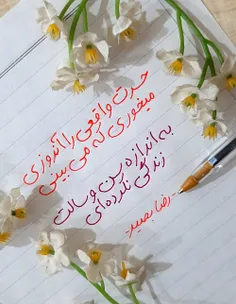 حسرت واقعی را آن روزی
میخوری که می بینی
به اندازه سن و سالت
زندگی نکرده ای
رضا بصیر